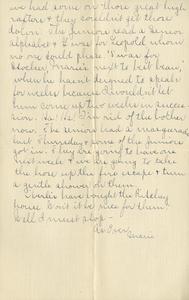 we had some on those great high
rafters & they couldn't get those
down. The juniors read a senior
alphabet & L was for Leopold whom
no one could place. "I was for
Stocker, Marie next to last beau,"
when he hasn't deigned to speak
for weeks because I wouldn't let
him come up two weeks in succes-
sion. Ha! Ha! I'm rid of the bother
now. The seniors had a inaugural
last Thursday & some of the juniors
got in. They are going to have one
next week & we are going to take
the hose up the fire escape & turn
a gentle shower on them.
have bought the
house. Won't it be nice for them?
Well I must stop -
As Ever,
Marie